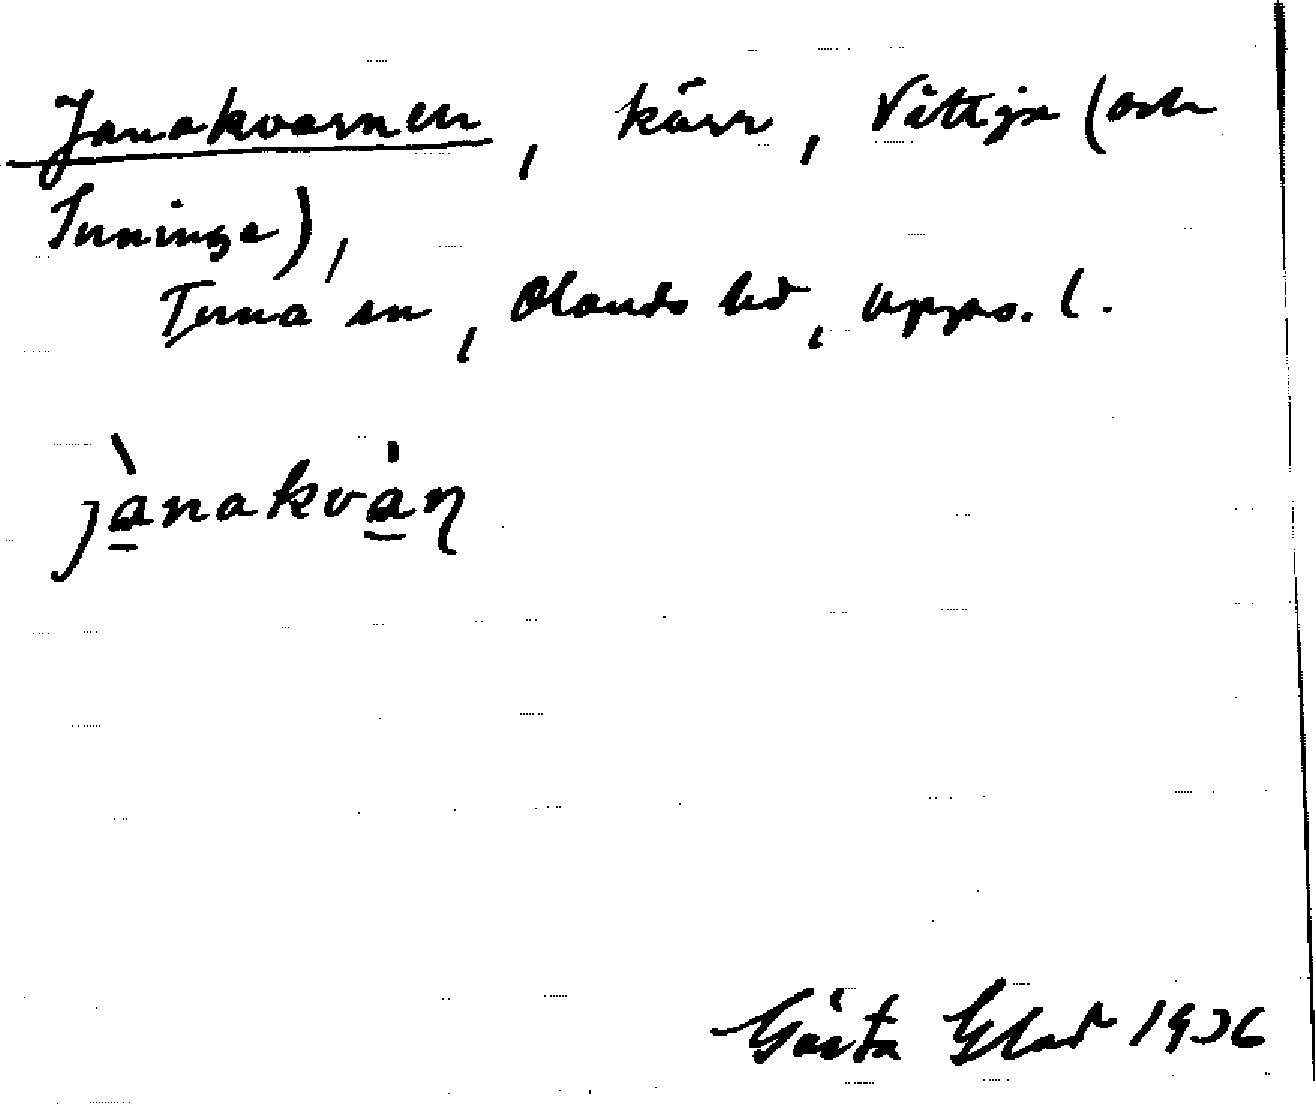 Janakvarnen, kärr, Vittja (och
Inninge),
Tensta sn, Olands hd, Upps. l.
jànakvàɳ
Gösta Glad 1936